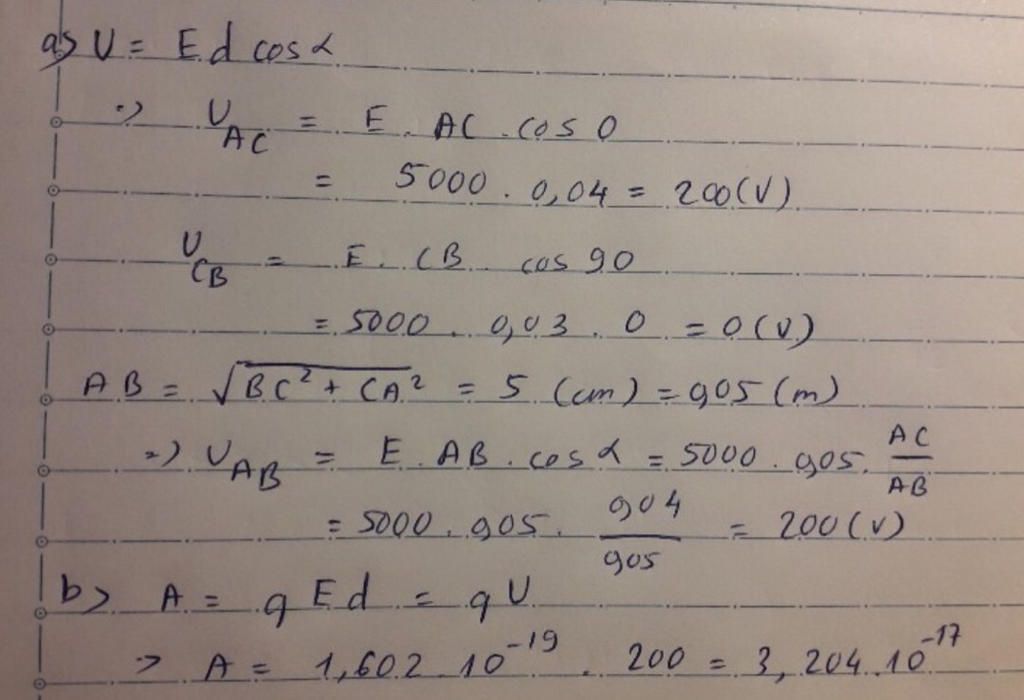 a) U = E d cos α
=> U_AC = E . AC . cos 0
= 5000 . 0,04 = 200 (V)
U_CB = E . CB . cos 90
= 5000 . 0,03 . 0 = 0 (V)
AB = √(BC² + CA²) = 5 (cm) = 0,05 (m)
=> U_AB = E . AB . cos α = 5000 . 0,05 . AC/AB
= 5000 . 0,05 . 0,04/0,05 = 200 (V)
b) A = q E d = q U
=> A = 1,602 . 10⁻¹⁹ . 200 = 3,204 . 10⁻¹⁷